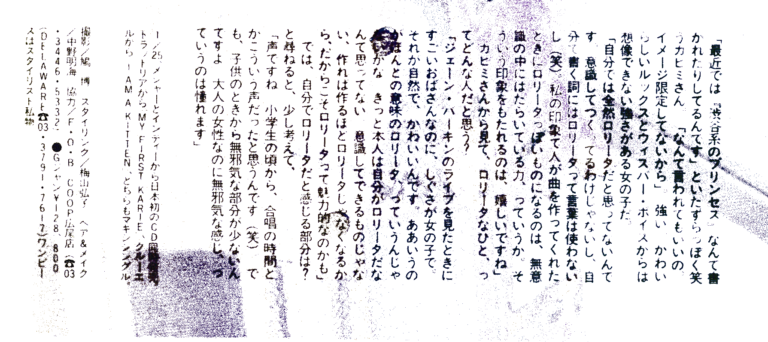 「最近では『渋谷系のプリンセス』なんて書
かれたりしてるんです」といたずらっぽく笑
うカヒミさん。「なんて言われてもいいの。
イメージ限定してないから」強い、かわい
らしいルックスとウィスパー・ボイスからは
想像できない強さがある女の子だ。
「自分では全然ロリータだと思ってないんで
す。意識してつくってるわけじゃないし、自
分で書く詞にはロリータって言葉は使わない
し（笑）。私の印象で人が曲を作ってくれた
ときにロリータっぽいものになるのは、無意
識の中にはたらいている力、っていうか、そ
ういう印象をもたれるのは、嬉しいですね」
カヒミさんから見て、ロリータなひと、っ
てどんな人だと思う？
「ジェーン・バーキンのライブを見たときに
すごいおばさんなのに、しぐさが女の子で、
それが自然で、かわいいんです。ああいうの
がほんとの意味のロリータ、っていうんじゃ
ないかな。きっと本人は自分がロリータだな
んて思ってない。意識してできるものじゃな
い、作れば作るほどロリータじゃなくなるか
ら、だからこそロリータって魅力的なのかも」
では、自分でロリータだと感じる部分は？
と尋ねると、少し考えて、
「声ですね。小学生の頃から、合唱の時間と
かこういう声だったと思うんです（笑）。で
も、子供のときから無邪気な部分が少ないん
ですよ。大人の女性なのに無邪気な感じっ
ていうのは憧れます」
1／25、メジャーとインディーから日本初のCD
トラットリアから MY FIRST KARIE、クルーエ
ルから I AM A KITTEN、どちらもマキシシングル。
撮影／嶋 博 スタイリング／梅山弘子 ヘア＆メイク
／中野明海 協力／F・O・B COOP広尾店（☎03
・3446・5332 ●Gジャン¥128,800
（DELAWARE☎03・3791・7617）ワンピー
スはスタイリスト私物